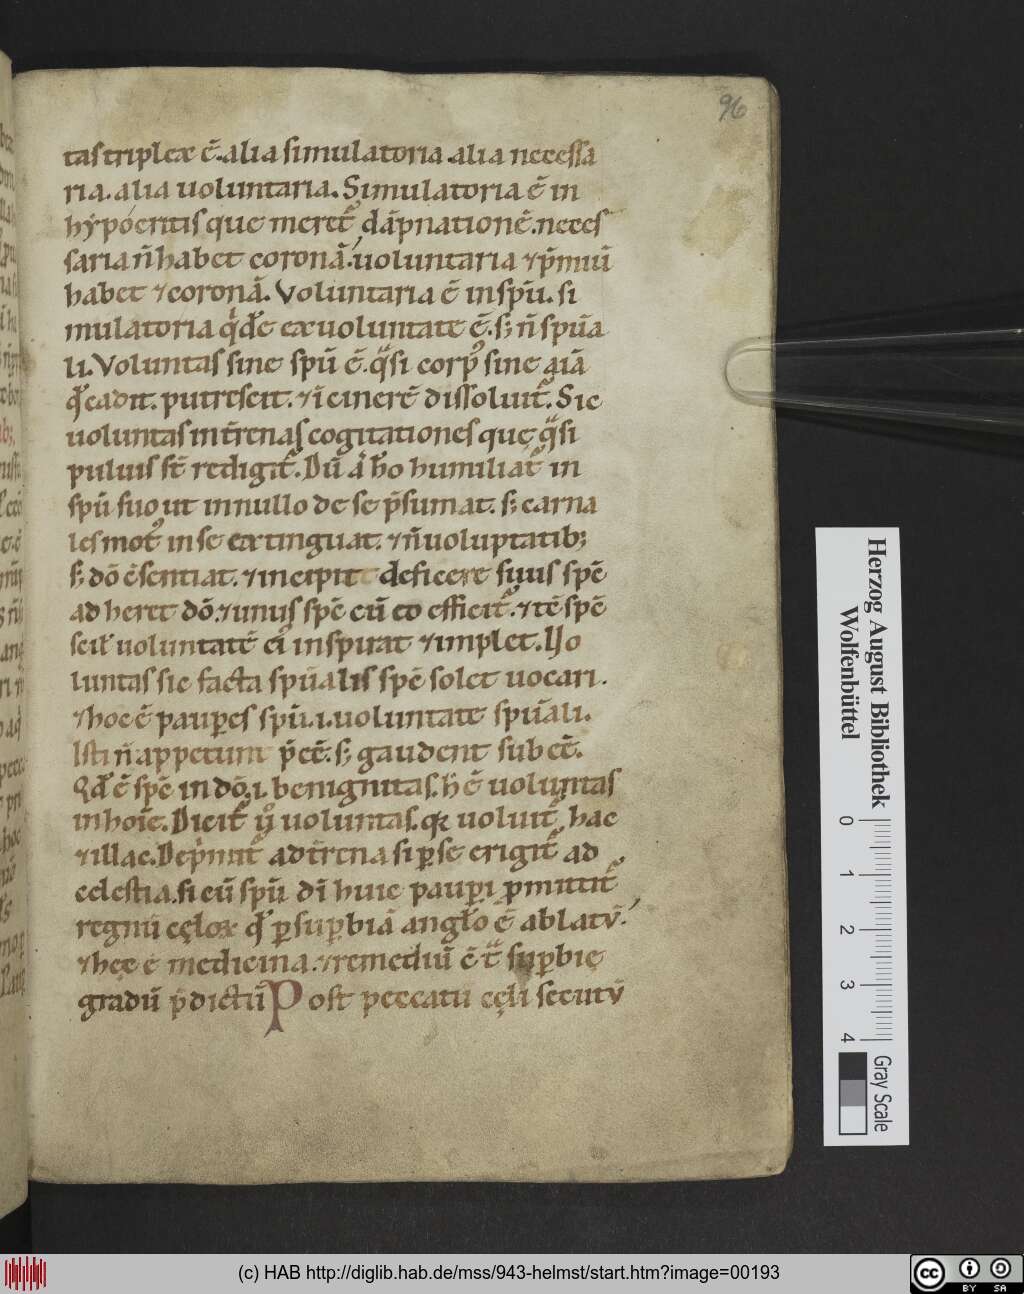 96
tas triplex ē. alia simulatoria. alia necessa
ria. alia uoluntaria. Simulatoria ē in
hẏpocritis que meret᷑ dāpnationē. neces
saria n̄ habet coronā. uoluntaria ⁊ p̄miū
habet ⁊ coronā. Voluntaria ē in sp̄u. si
mulatoria qͥdē ex uoluntate ē. sꝫ n̄ sp̄ua
li. Voluntas sine sp̄u ē. qͣsi corpꝰ sine aīa
qđ cadit. putrescit. ⁊ ī cinerē dissoluit᷑. Sic
uoluntas in t̄renas cogitationes que qͣsi
puluis st̄ redigit᷑. Dū aͥ h̄o humiliat᷑ in
sp̄u suo ut in nullo de se p̄sumat. sꝫ carna
les motꝰ in se extinguat. ⁊ n̄ uoluptatibꝫ
sꝫ dō c̄sentiat. ⁊ incipit deficere suus sp̄c
ad heret dō. ⁊ unus sp̄c cū eo efficit᷑. ⁊ tc̄ sp̄c
scił uoluntatē ei inspirat ⁊ implet. Uo
luntas sic facta sp̄ualis sp̄c solet uocari.
⁊ hoc ē pauꝑes sp̄u. i. uoluntate sp̄uali.
Isti n̄ appetunt p̄cc̄. sꝫ gaudent subcc̄.
Qđ ē sp̄c in dō. i. benignitas. h̄ ē uoluntas
in hoīe. Dicit᷑ ů uoluntas. qꝛ uoluit᷑ hac
⁊ illac. Dep̄mit᷑ ad t̄rena si ꝑ se erigit᷑ ad
celestia. si cū sp̄u dī huic pauꝑi ꝓmittit᷑
regnū cęloꝝ qđ ꝑ suꝑbiā angło ē ablatū.
⁊ hęc ē medicina. ⁊ remediū c̄tͣ suꝑbię
gradū p̄dictū Post peccatū cęli secutū
Herzog August Bibliothek
Wolfenbüttel
0 1 2 3 4
Gray Scale
(c) HAB http://diglib.hab.de/mss/943-helmst/start.htm?image=00193
cc BY SA